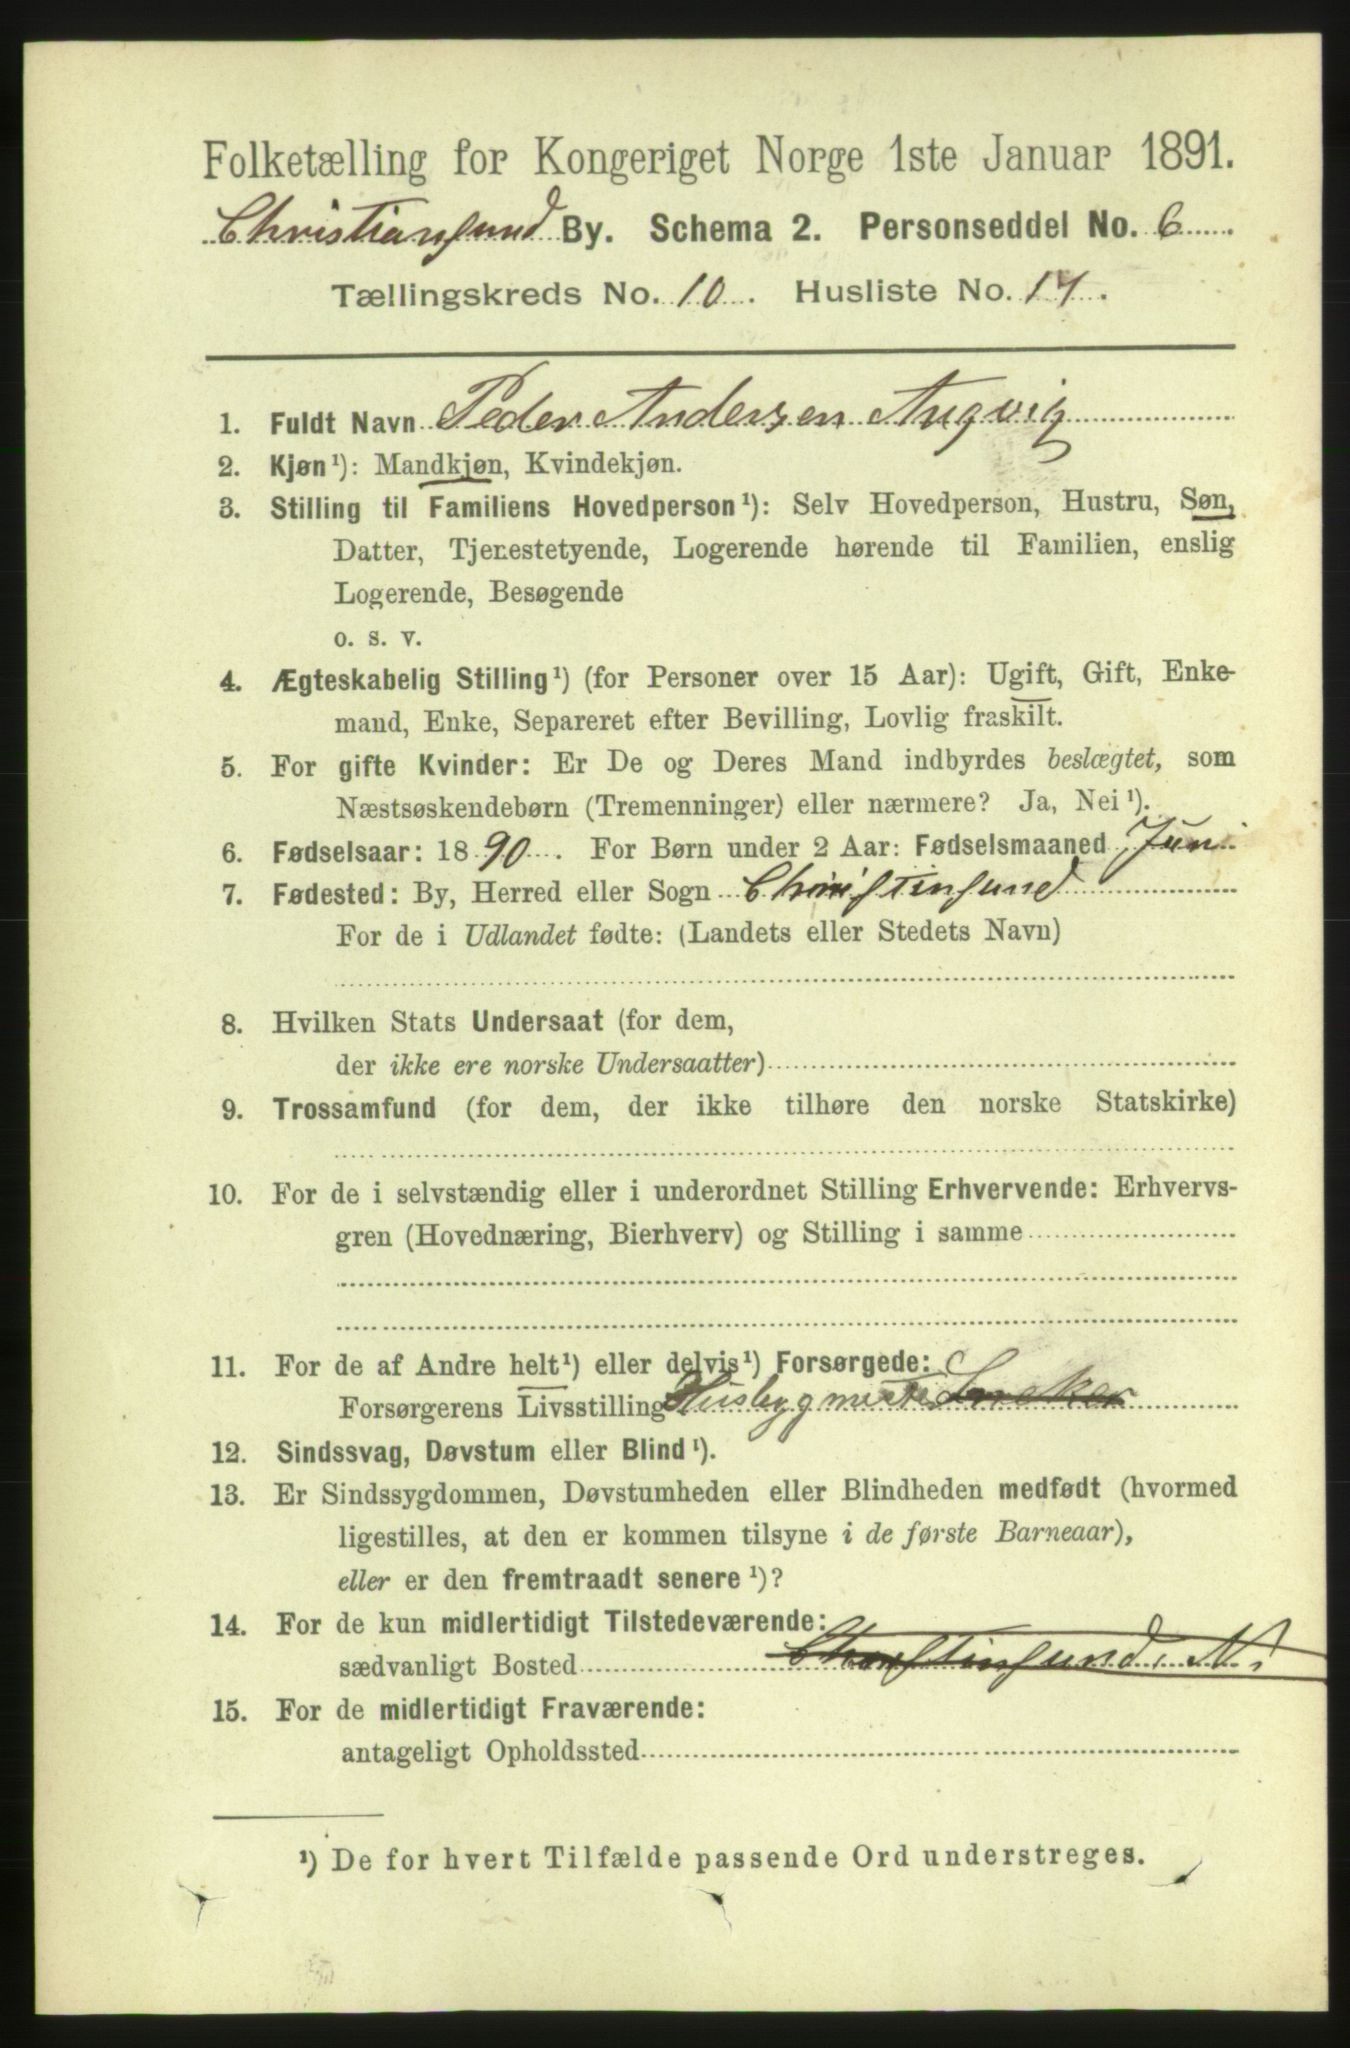 Folketælling for Kongeriget Norge 1ste Januar 1891.
Christiansund By. Schema 2. Personseddel No. 6
Tællingskreds No. 10. Husliste No. 14.
1. Fuldt Navn Peder Andersen Angvig
2. Kjøn¹): Mandkjøn, Kvindekjøn.
3. Stilling til Familiens Hovedperson¹): Selv Hovedperson, Hustru, Søn,
Datter, Tjenestetyende, Logerende hørende til Familien, enslig
Logerende, Besøgende
o. s. v.
4. Ægteskabelig Stilling¹) (for Personer over 15 Aar): Ugift, Gift, Enke-
mand, Enke, Separeret efter Bevilling, Lovlig fraskilt.
5. For gifte Kvinder: Er De og Deres Mand indbyrdes beslægtet, som
Næstsøskendebørn (Tremenninger) eller nærmere? Ja, Nei¹).
6. Fødselsaar: 1890. For Børn under 2 Aar: Fødselsmaaned Juni
7. Fødested: By, Herred eller Sogn Christinsund
For de i Udlandet fødte: (Landets eller Stedets Navn)
8. Hvilken Stats Undersaat (for dem,
der ikke ere norske Undersaatter)
9. Trossamfund (for dem, der ikke tilhøre den norske Statskirke)
10. For de i selvstændig eller i underordnet Stilling Erhvervende: Erhvervs-
gren (Hovednæring, Bierhverv) og Stilling i samme
11. For de af Andre helt¹) eller delvis¹) Forsørgede:
Forsørgerens Livsstilling Husbygmester Sneker
12. Sindssvag, Døvstum eller Blind¹).
13. Er Sindssygdommen, Døvstumheden eller Blindheden medfødt (hvormed
ligestilles, at den er kommen tilsyne i de første Barneaar),
eller er den fremtraadt senere¹)?
14. For de kun midlertidigt Tilstedeværende:
sædvanligt Bosted Christinsund. N.
15. For de midlertidigt Fraværende:
antageligt Opholdssted
¹) De for hvert Tilfælde passende Ord understreges.